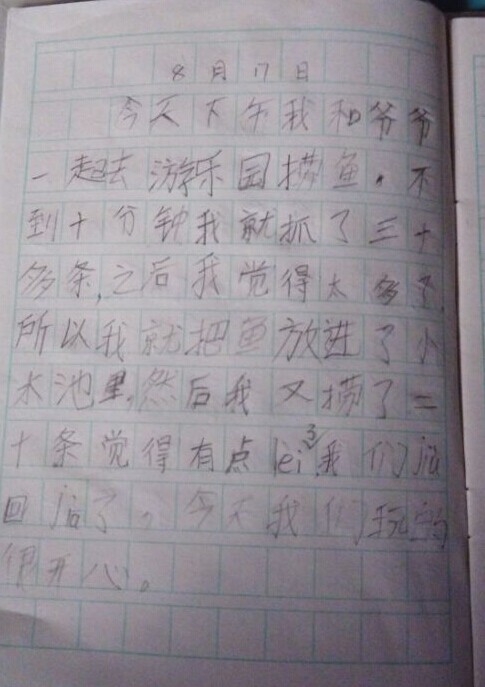 8月17日
今天下午我和爷爷
一起去游乐园捞鱼，不
到十分钟我就抓了三十
多条，之后我觉得太多了，
所以我就把鱼放进了小
水池里，然后我又捞了二
十条觉得有点lei，我们jiu
回jia了。今天我们玩的
很开心。